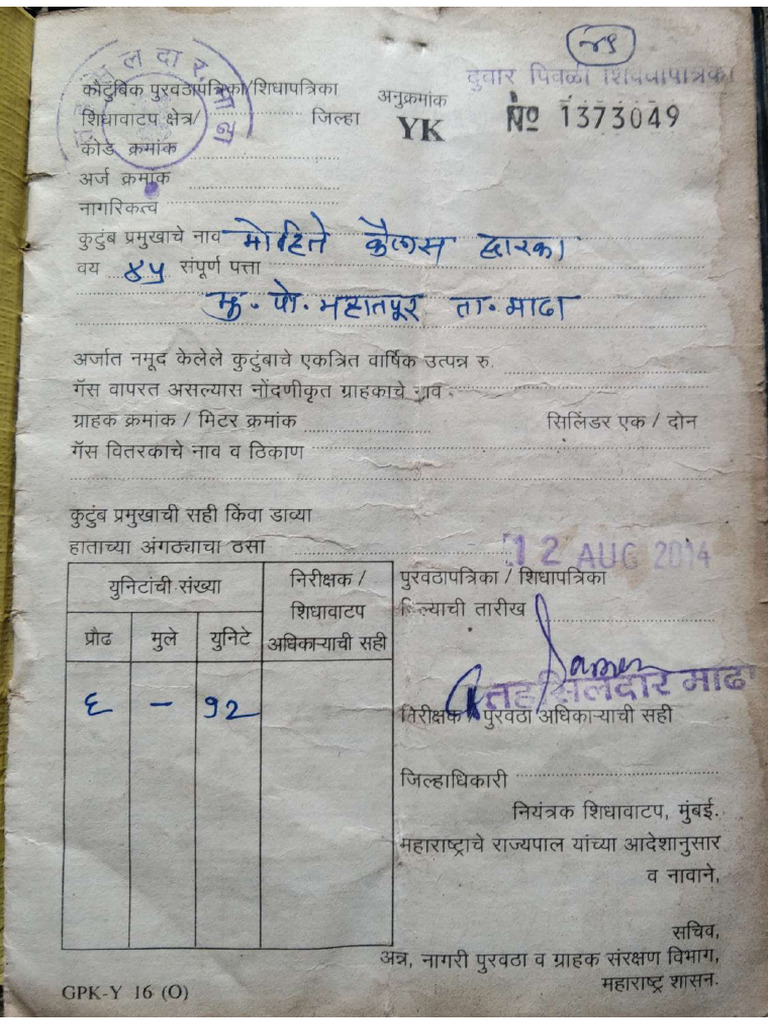 ४९
दुबार पिवळी शिधापत्रिका
तहसिलदार, माढा
कौटुंबिक पुरवठापत्रिका/शिधापत्रिका
अनुक्रमांक
शिधावाटप क्षेत्र/ जिल्हा
YK
№ 1373049
कोड क्रमांक
अर्ज क्रमांक
नागरिकत्व
कुटुंब प्रमुखाचे नाव मोहिते कैलास द्वारका
वय ४५ संपूर्ण पत्ता
मु. पो. महातपूर ता. माढा
अर्जात नमूद केलेले कुटुंबाचे एकत्रित वार्षिक उत्पन्न रु.
गॅस वापरत असल्यास नोंदणीकृत ग्राहकाचे नाव
ग्राहक क्रमांक / मिटर क्रमांक सिलिंडर एक / दोन
गॅस वितरकाचे नाव व ठिकाण
कुटुंब प्रमुखाची सही किंवा डाव्या
हाताच्या अंगठ्याचा ठसा
12 AUG 2014
युनिटांची संख्या
निरीक्षक /
शिधावाटप
अधिकाऱ्याची सही
प्रौढ मुले युनिटे
६ – १२
पुरवठापत्रिका / शिधापत्रिका
दिल्याची तारीख
तहसिलदार माढा
निरीक्षक / पुरवठा अधिकाऱ्याची सही
जिल्हाधिकारी
नियंत्रक शिधावाटप, मुंबई.
महाराष्ट्राचे राज्यपाल यांच्या आदेशानुसार
व नावाने,
सचिव,
अन्न, नागरी पुरवठा व ग्राहक संरक्षण विभाग,
महाराष्ट्र शासन.
GPK-Y 16 (O)